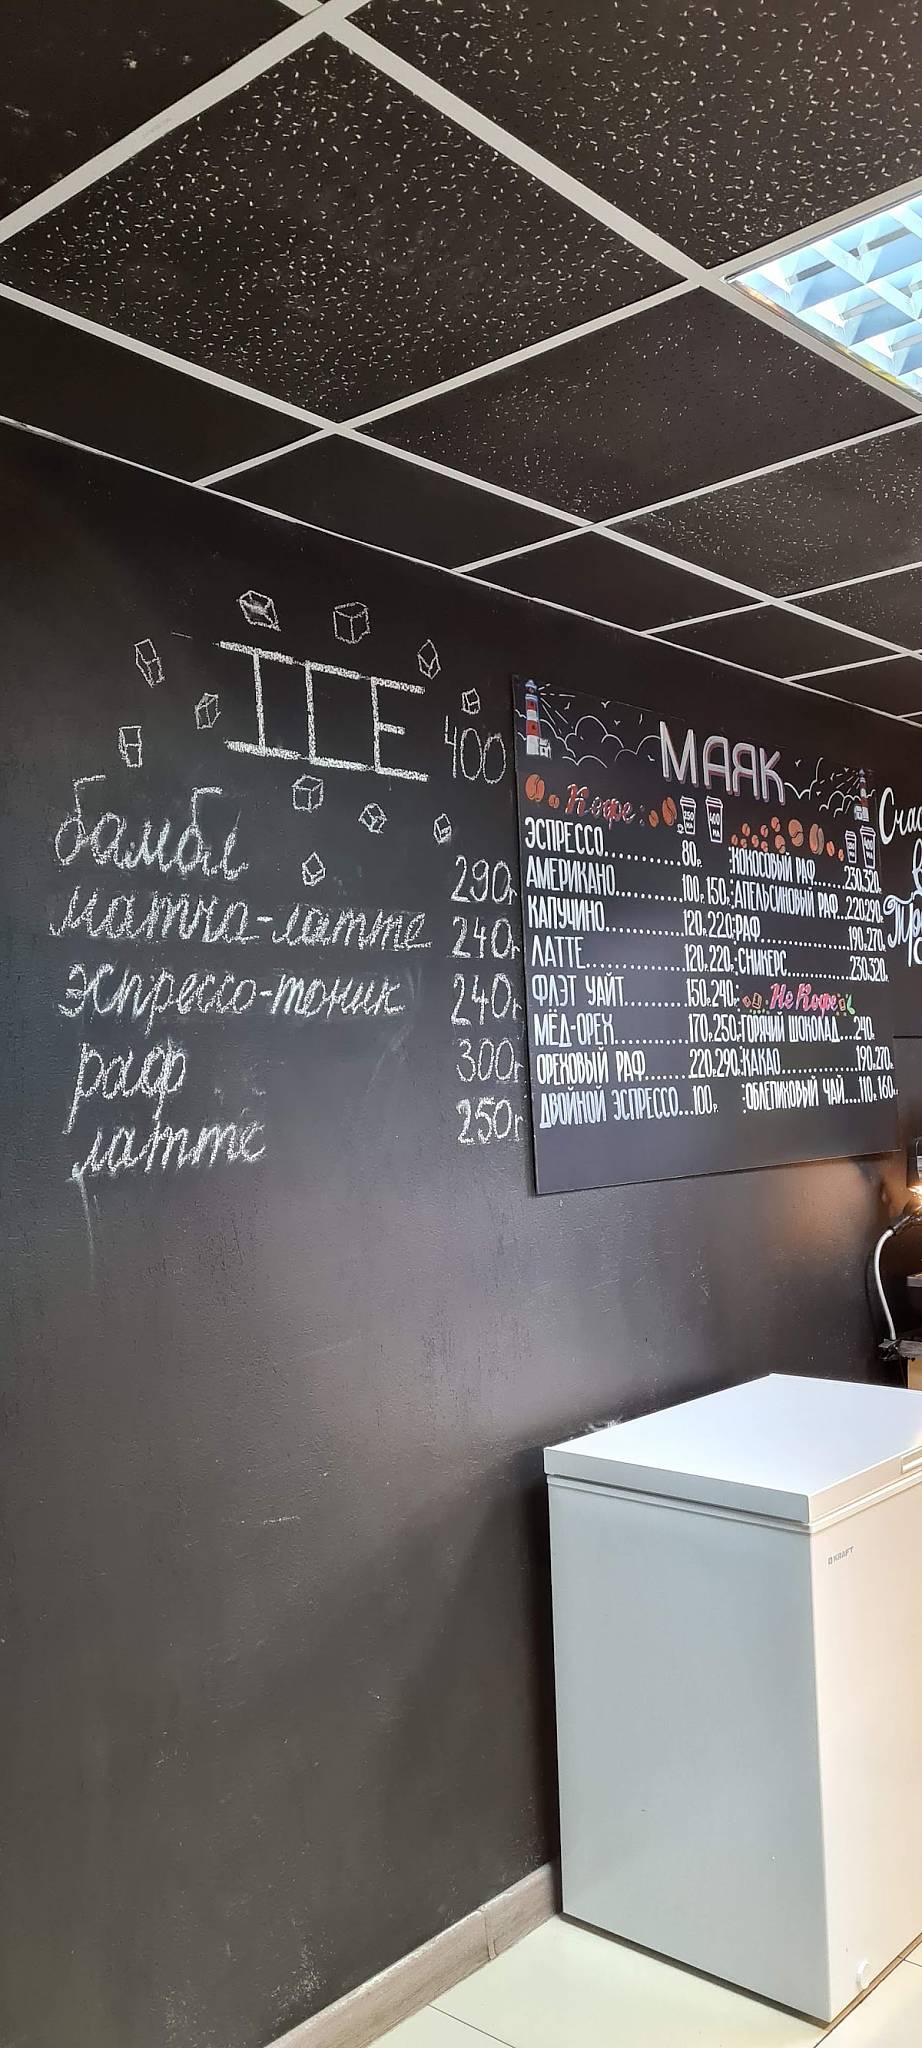 ICE
400
бамбл 290р
матча-латте 240р
эспрессо-тоник 240р
раф 300р
латте 250р
МАЯК
Кофе:
250 МЛ 400 МЛ
ЭСПРЕССО............80р.
АМЕРИКАНО..........100р.150р.
КАПУЧИНО............120р.220р.
ЛАТТЕ................120р.220р.
ФЛЭТ УАЙТ..........150р.240р.
МЁД-ОРЕХ...........170р.250р.
ОРЕХОВЫЙ РАФ.......220р.290р.
ДВОЙНОЙ ЭСПРЕССО...100р.
КОКОСОВЫЙ РАФ......230р.320р.
АПЕЛЬСИНОВЫЙ РАФ..220р.290р.
РАФ.................190р.270р.
СНИКЕРС............230р.320р.
Не Кофе:
ГОРЯЧИЙ ШОКОЛАД....240р.
КАКАО...............190р.270р.
ОБЛЕПИХОВЫЙ ЧАЙ....110р.160р.
KRAFT